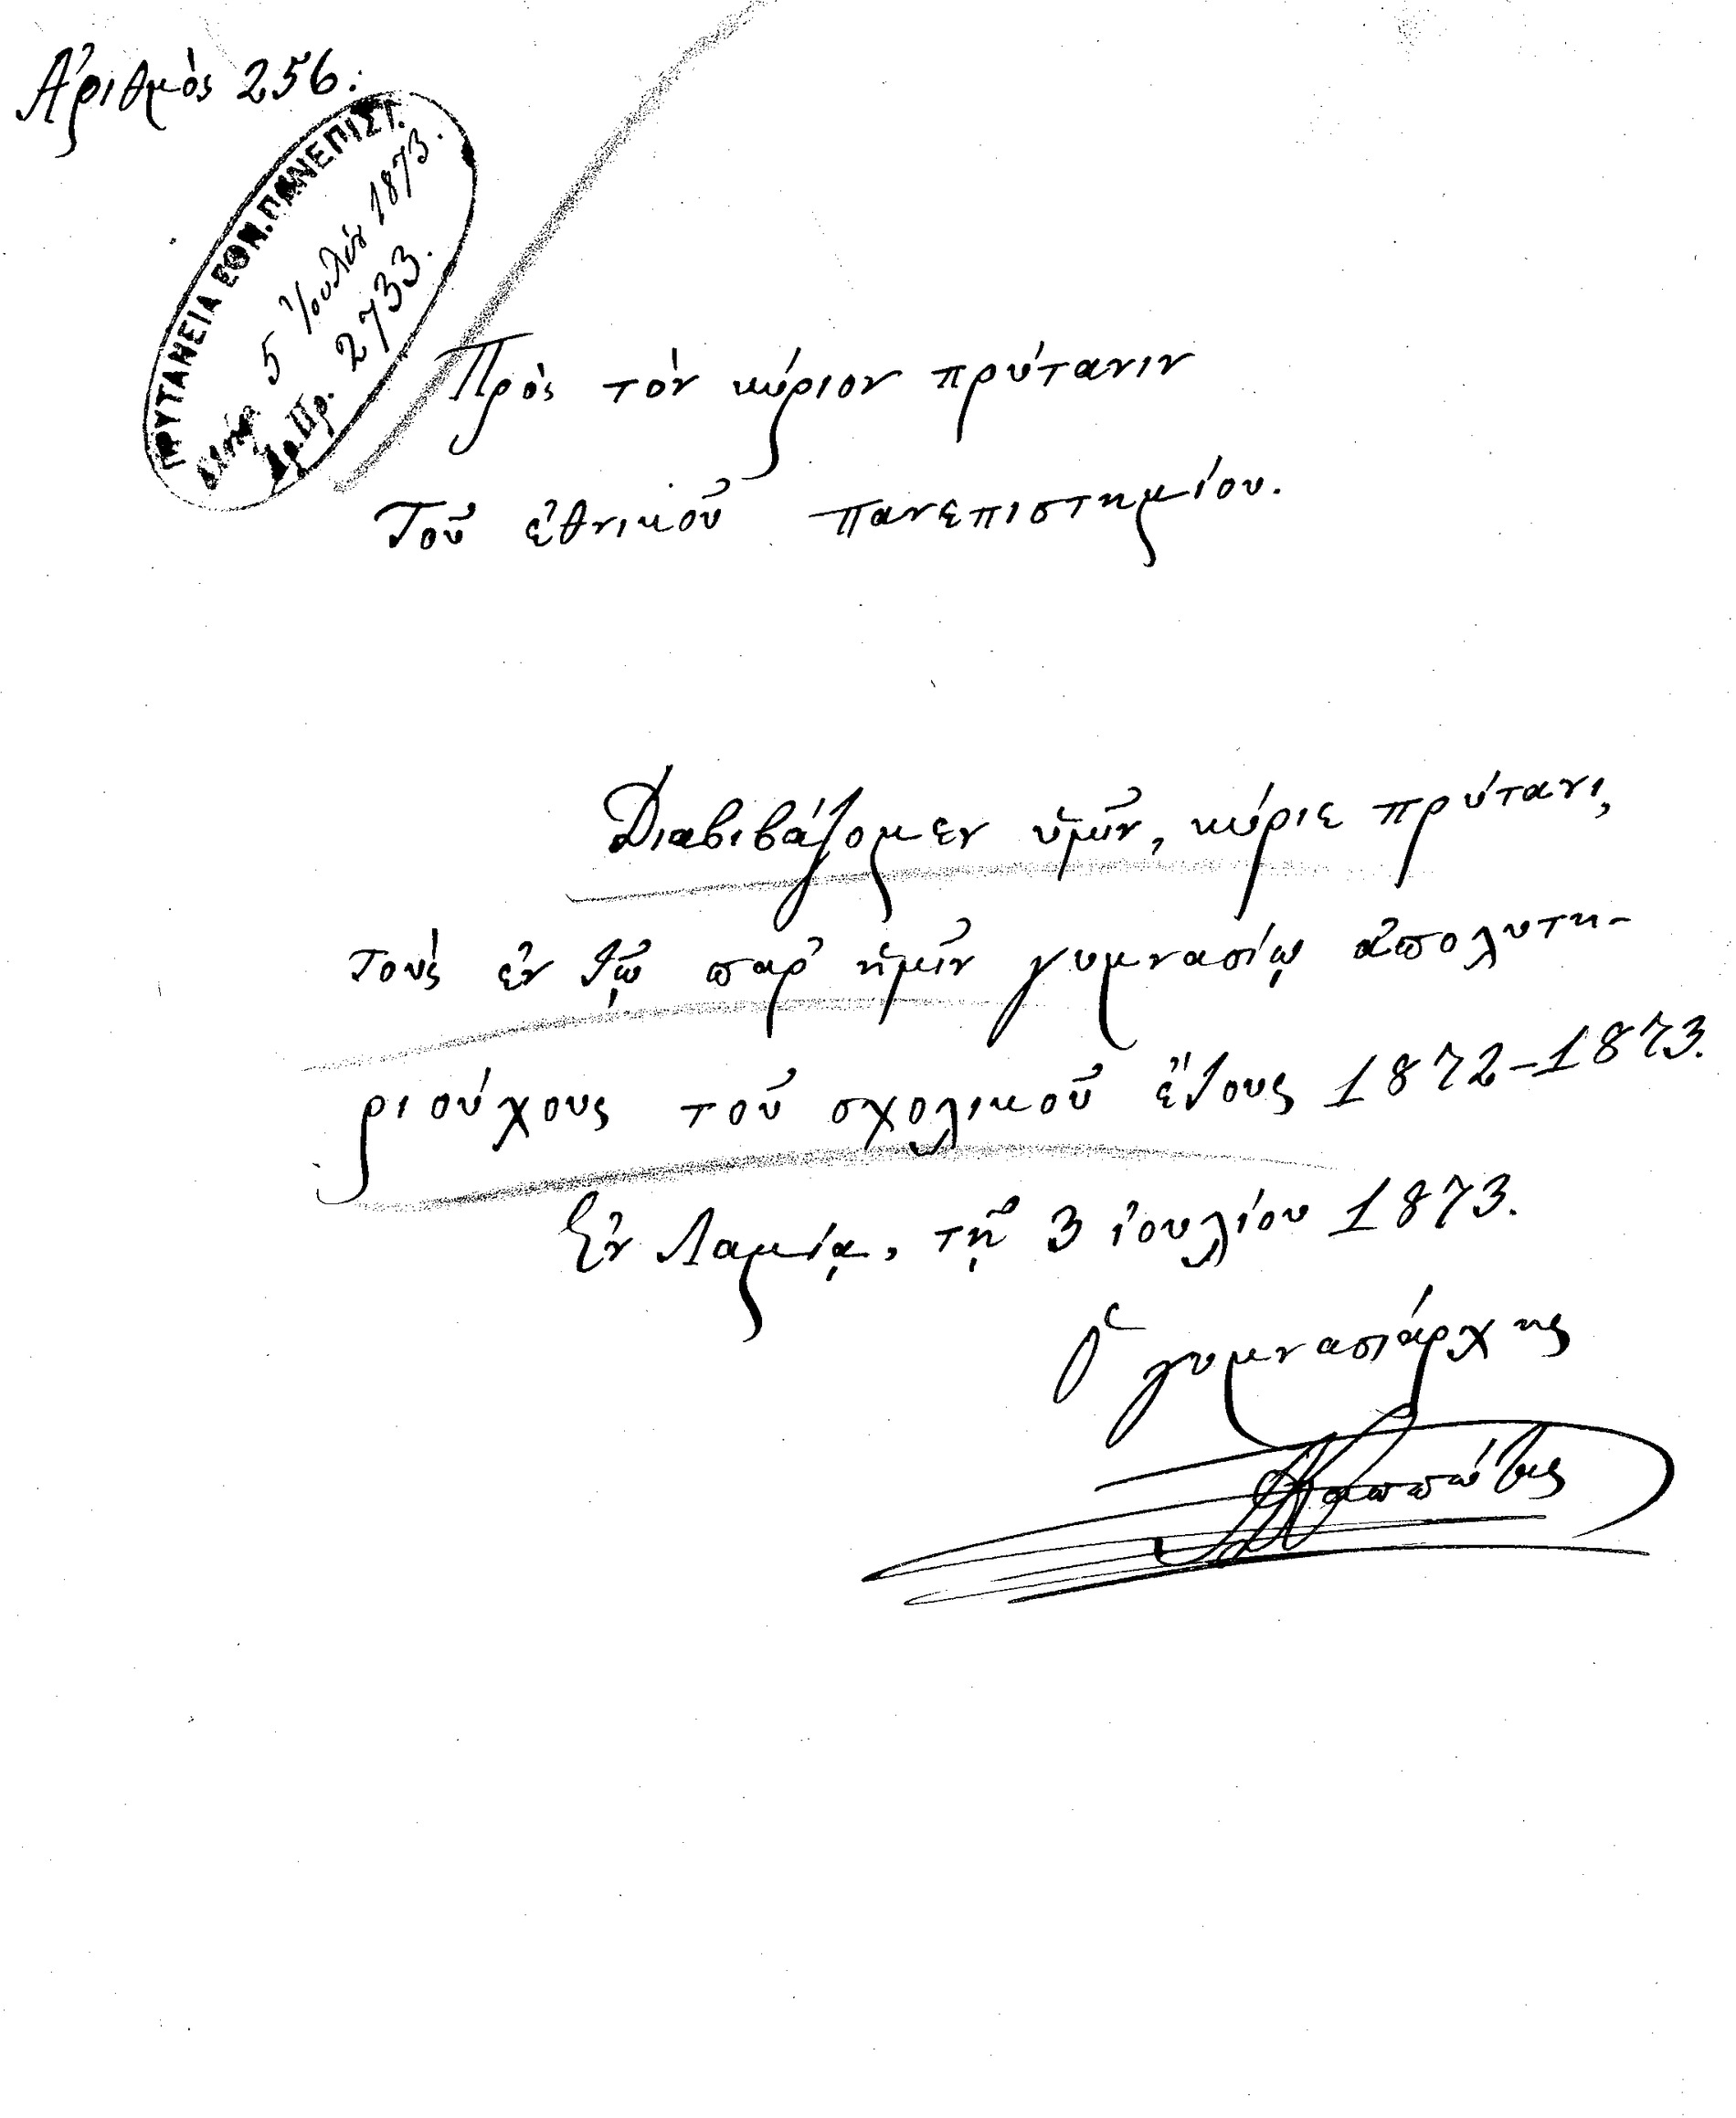 Ἀριθμὸς 256.
ΠΡΥΤΑΝΕΙΑ ΕΘΝ. ΠΑΝΕΠΙΣΤ.
5 Ἰουλίου 1873.
Ἀρ. Πρ. 2733.
Πρὸς τὸν κύριον πρύτανιν
Τοῦ ἐθνικοῦ πανεπιστημίου.
Διαβιβάζομεν ὑμῖν, κύριε πρύτανι,
τοὺς ἐν τῷ παρ' ἡμῖν γυμνασίῳ ἀπολυτη-
ριούχους τοῦ σχολικοῦ ἔτους 1872-1873.
Ἐν Λαμίᾳ, τῇ 3 ἰουλίου 1873.
Ὁ γυμνασιάρχης